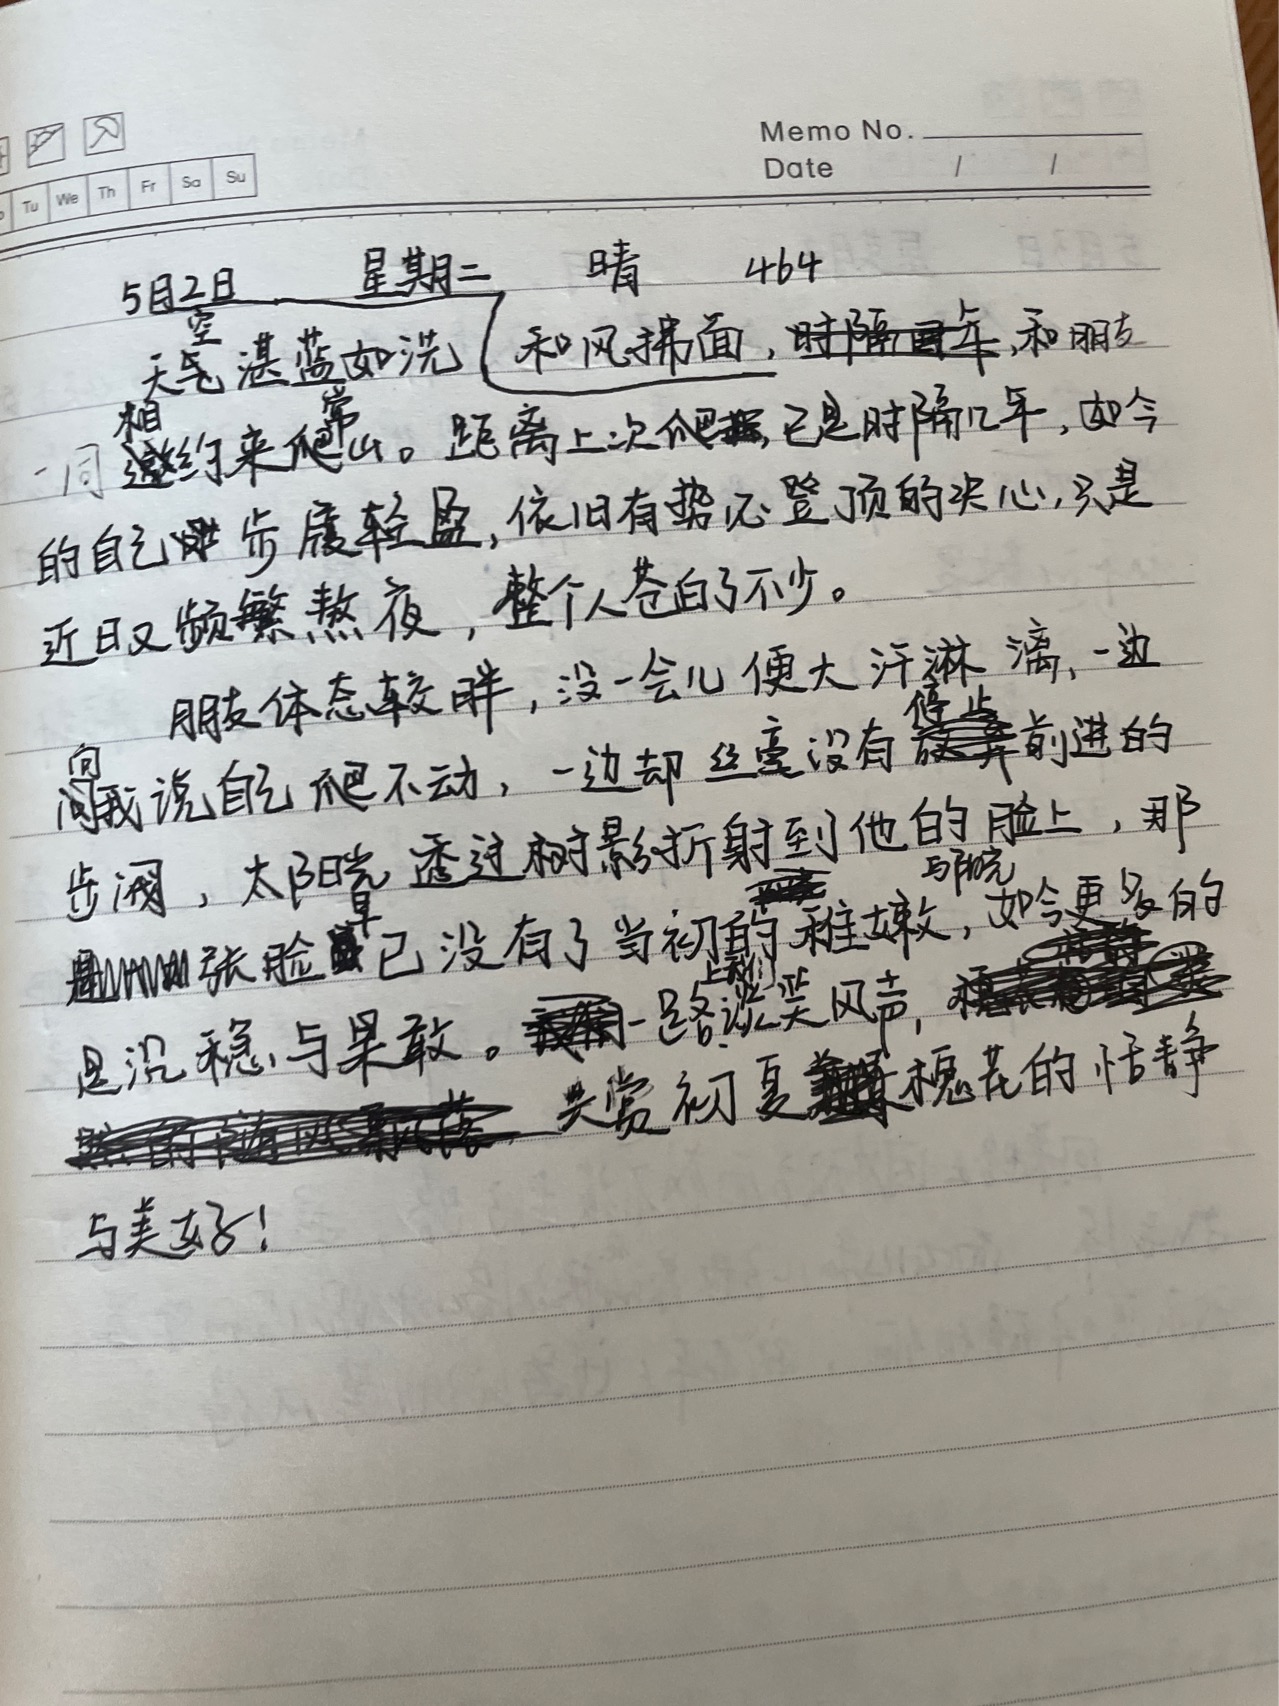 Memo No.
Date / /
Tu We Th Fr Sa Su
5月2日 星期二 晴 464
空
天气湛蓝如洗 和风拂面,时隔四年,和朋友
相 常
一同邀约来爬山。距离上次爬 已是时隔几年,如今
的自己 步履轻盈,依旧有势必登顶的决心,只是
近日又频繁熬夜,整个人苍白了不少。
朋友体态较胖,没一会儿便大汗淋漓,一边
向 停止
问我说自己爬不动,一边却丝毫没有放弃前进的
步 ,太阳光透过树影折射到他的脸上,那
早 与阳光
张脸 已没有了当初的稚嫩,如今更多的
上我们
是沉稳与果敢。我们一路谈笑风声,
随风飘落,共赏初夏 槐花的恬静
与美好!